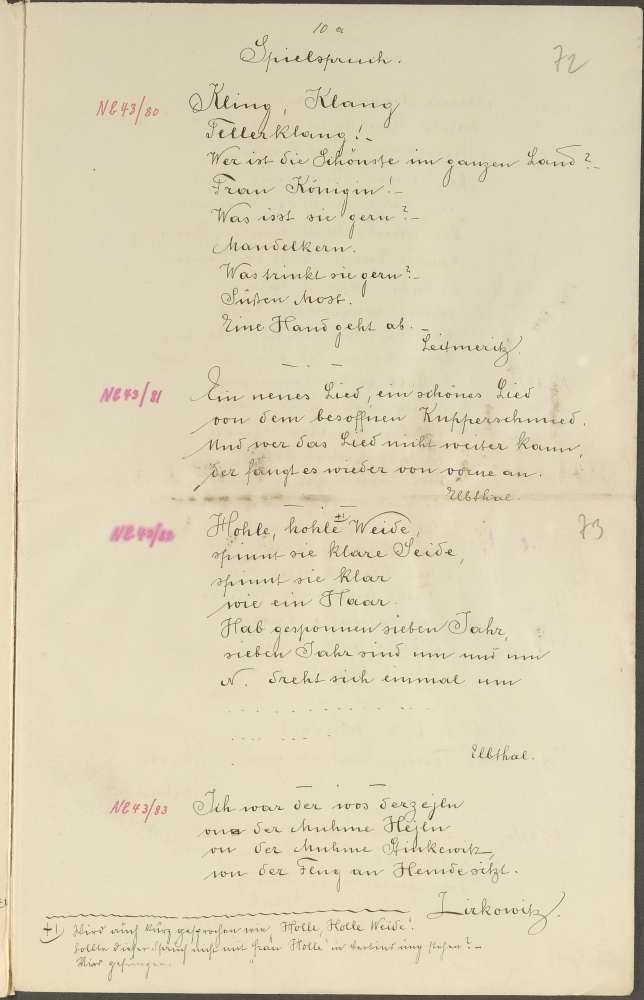 10 a
Spielspruch.
72
NB 43/80
Kling, Klang
Tellerklang! –
Wer ist die Schönste im ganzen Land? –
Frau Königin! –
Was isst sie gern? –
Mandelkern.
Was trinkt sie gern? –
Süßen Most.
Eine Hand geht ab. –
Leitmeritz.
NB 43/81
Ein neues Lied, ein schönes Lied
von dem besoffnen Kupperschmied.
Und wer das Lied nicht weiter kann,
der fängt es wieder von vorne an.
Elbthal.
NB 43/82
73
Hohle, hohle +) Weide,
spinnt sie klare Seide,
spinnt sie klar
wie ein Haar.
Hab gesponnen sieben Jahr,
sieben Jahr sind um und um
N. dreht sich einmal um
Elbthal.
NB 43/83
Ich war der wos derzejln
von der Muhme Hejln
von der Muhme Stinkewitz,
von der Flug an Hemde sitzt.
Lirkowitz.
+) Wird auch kurz gesprochen wie „Holle, Holle Weide“.
Sollte dieser Spruch nicht mit „Frau Holle“ in Verbindung stehen? –
Wird gesungen.